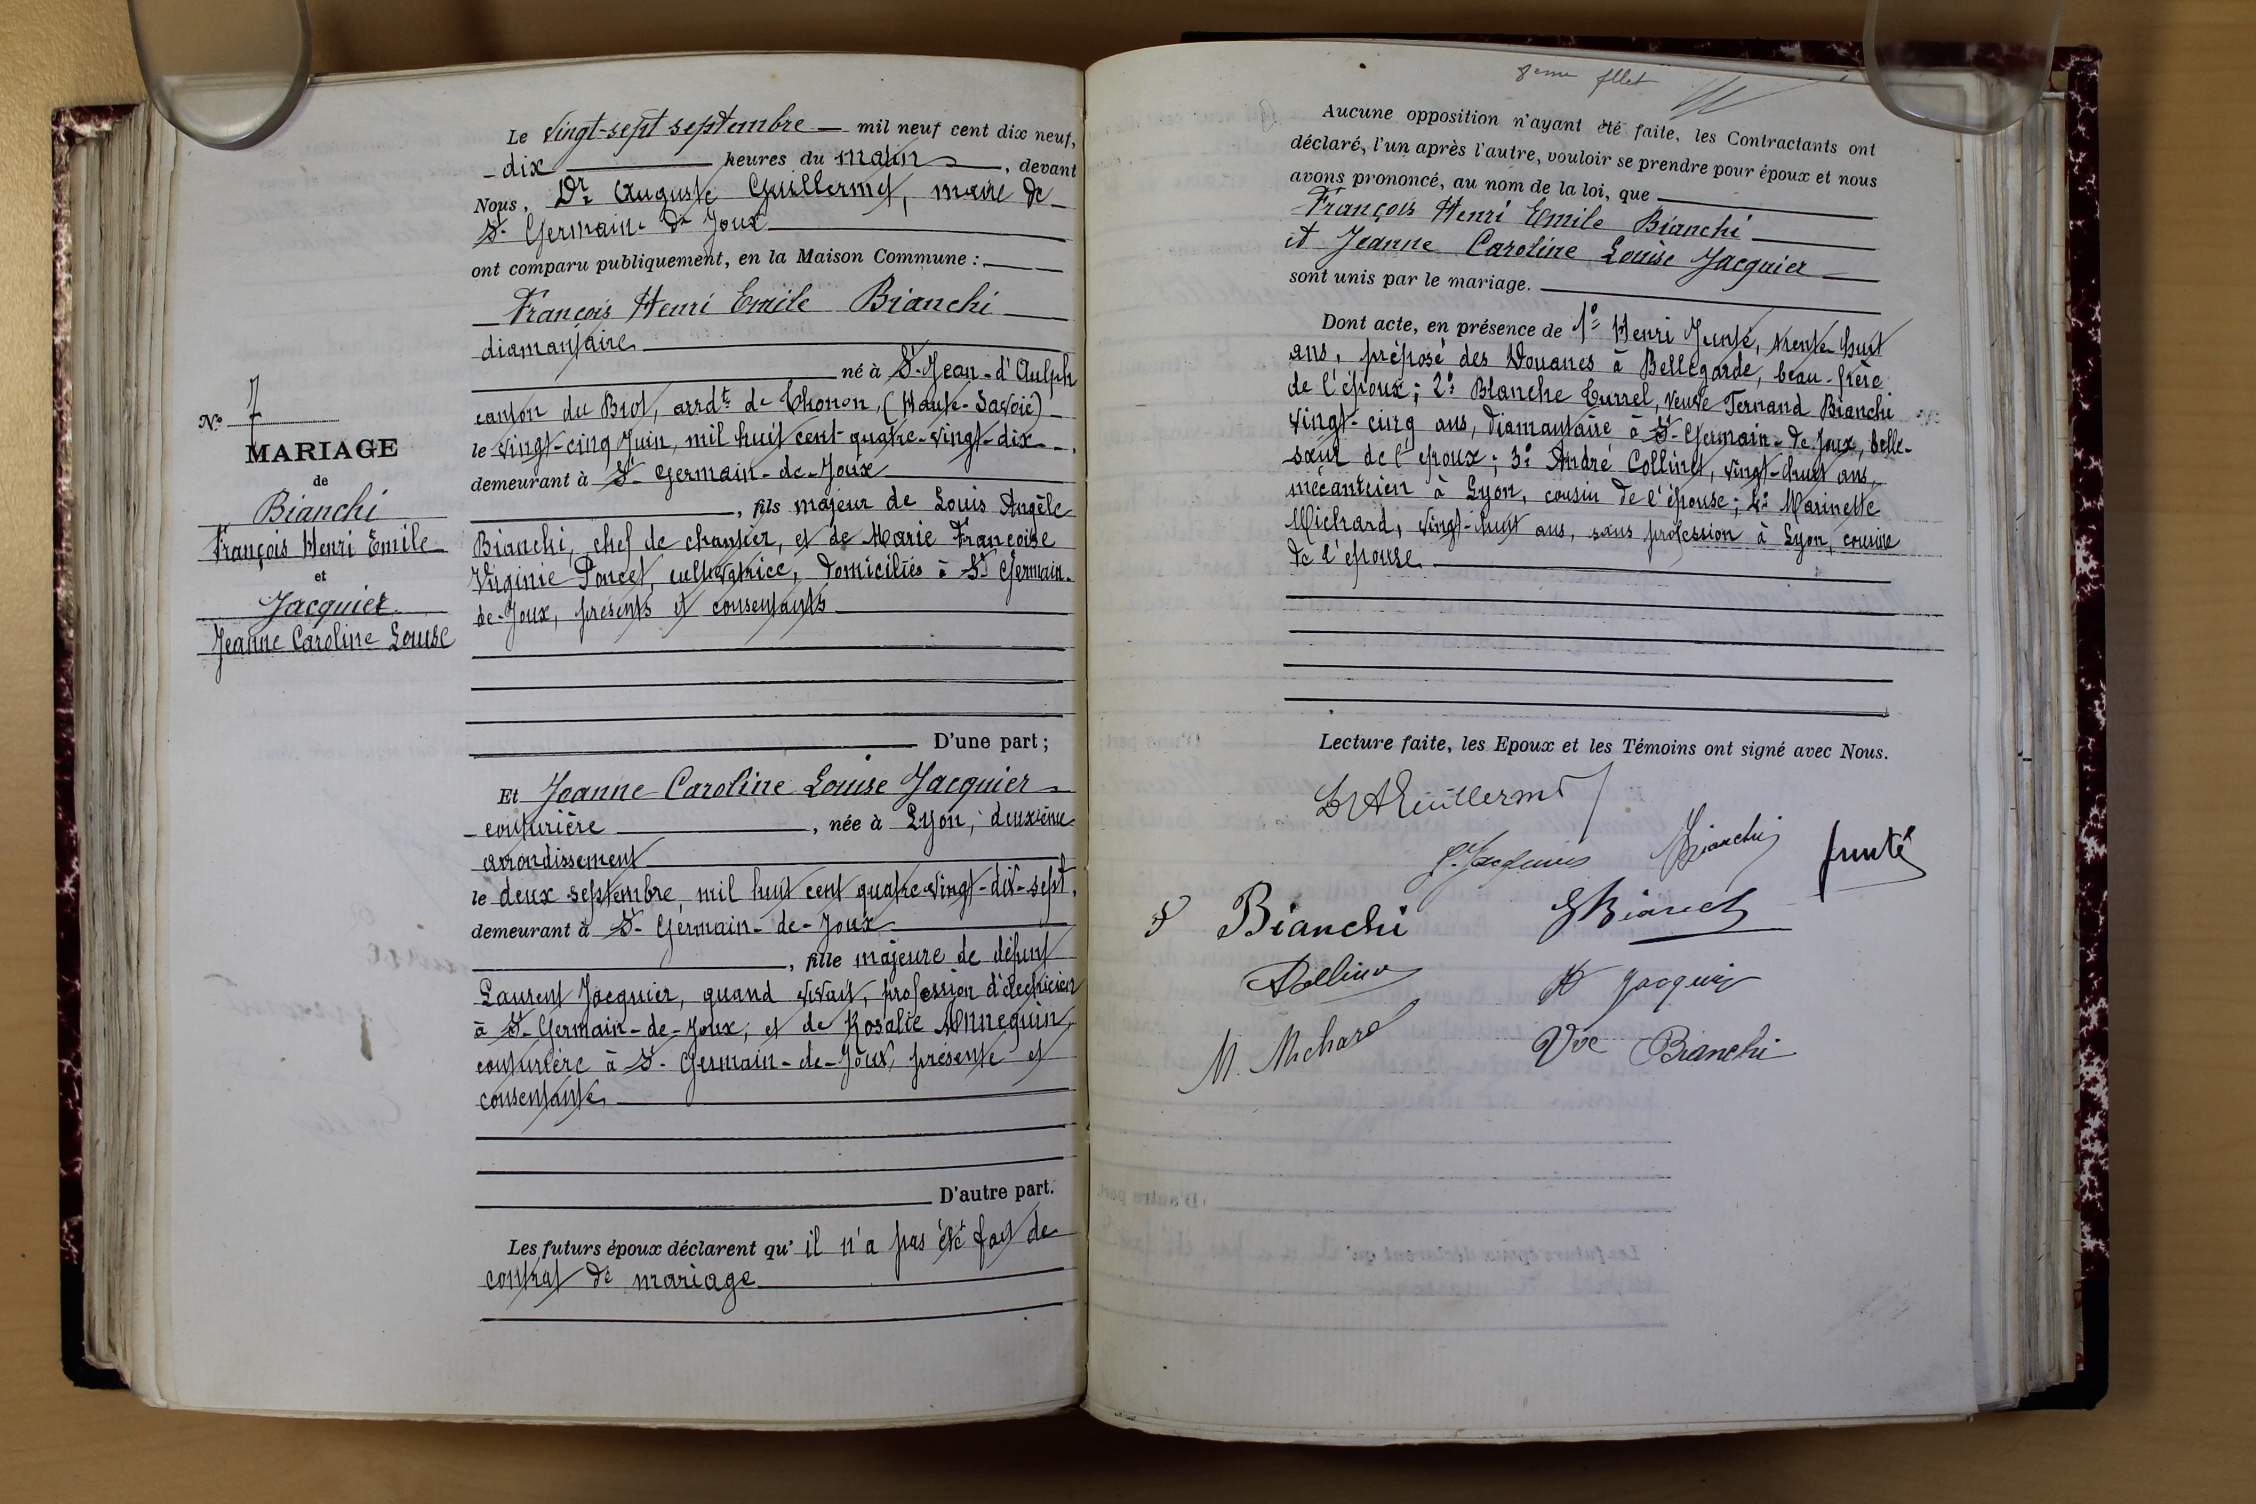 Le vingt-sept septembre — mil neuf cent dix neuf,
- dix heures du matin, devant
Nous, Dr Auguste Guillermet, maire de
St Germain-de-Joux
ont comparu publiquement, en la Maison Commune :
François Henri Emile Bianchi
diamantaire
né à St-Jean-d'Aulph
canton du Biot, arrdt de Thonon, (Haute-Savoie)
le vingt-cinq Juin, mil huit cent quatre-vingt-dix
demeurant à St-Germain-de-Joux
, fils majeur de Louis Angèle
Bianchi, chef de chantier, et de Marie Françoise
Virginie Poncet, cultivatrice, domiciliés à St Germain-
de-Joux, présents et consentants
D'une part ;
Et Jeanne Caroline Louise Jacquier
couturière, née à Lyon, deuxième
arrondissement
le deux septembre, mil huit cent quatre-vingt-dix-sept,
demeurant à St-Germain-de-Joux
, fille majeure de défunt
Laurent Jacquier, quand vivait, profession d'électricien
à St-Germain-de-Joux, et de Rosalie Annequin,
couturière à St-Germain-de-Joux, présente et
consentante
D'autre part.
Les futurs époux déclarent qu'il n'a pas été fait de
contrat de mariage
No 7
MARIAGE
de
Bianchi
François Henri Emile
et
Jacquier
Jeanne Caroline Louise
8eme fllet
Aucune opposition n'ayant été faite, les Contractants ont
déclaré, l'un après l'autre, vouloir se prendre pour époux et nous
avons prononcé, au nom de la loi, que
François Henri Emile Bianchi
et Jeanne Caroline Louise Jacquier
sont unis par le mariage.
Dont acte, en présence de 1° Henri Junté, trente-huit
ans, préposé des Douanes à Bellegarde, beau-frère
de l'époux ; 2° Blanche Curzel, veuve Fernand Bianchi
vingt-cinq ans, diamantaire à St-Germain-de-Joux, belle-
sœur de l'époux ; 3° André Collinet, vingt-huit ans,
mécanicien à Lyon, cousin de l'épouse ; 4° Marinette
Michard, vingt-huit ans, sans profession à Lyon, cousine
de l'épouse
Lecture faite, les Epoux et les Témoins ont signé avec Nous.
Dr A Guillermet
J. Jacquier
Bianchi
Junté
Bianchi
Bianchi
Jacquier
M. Michard
Vve Bianchi